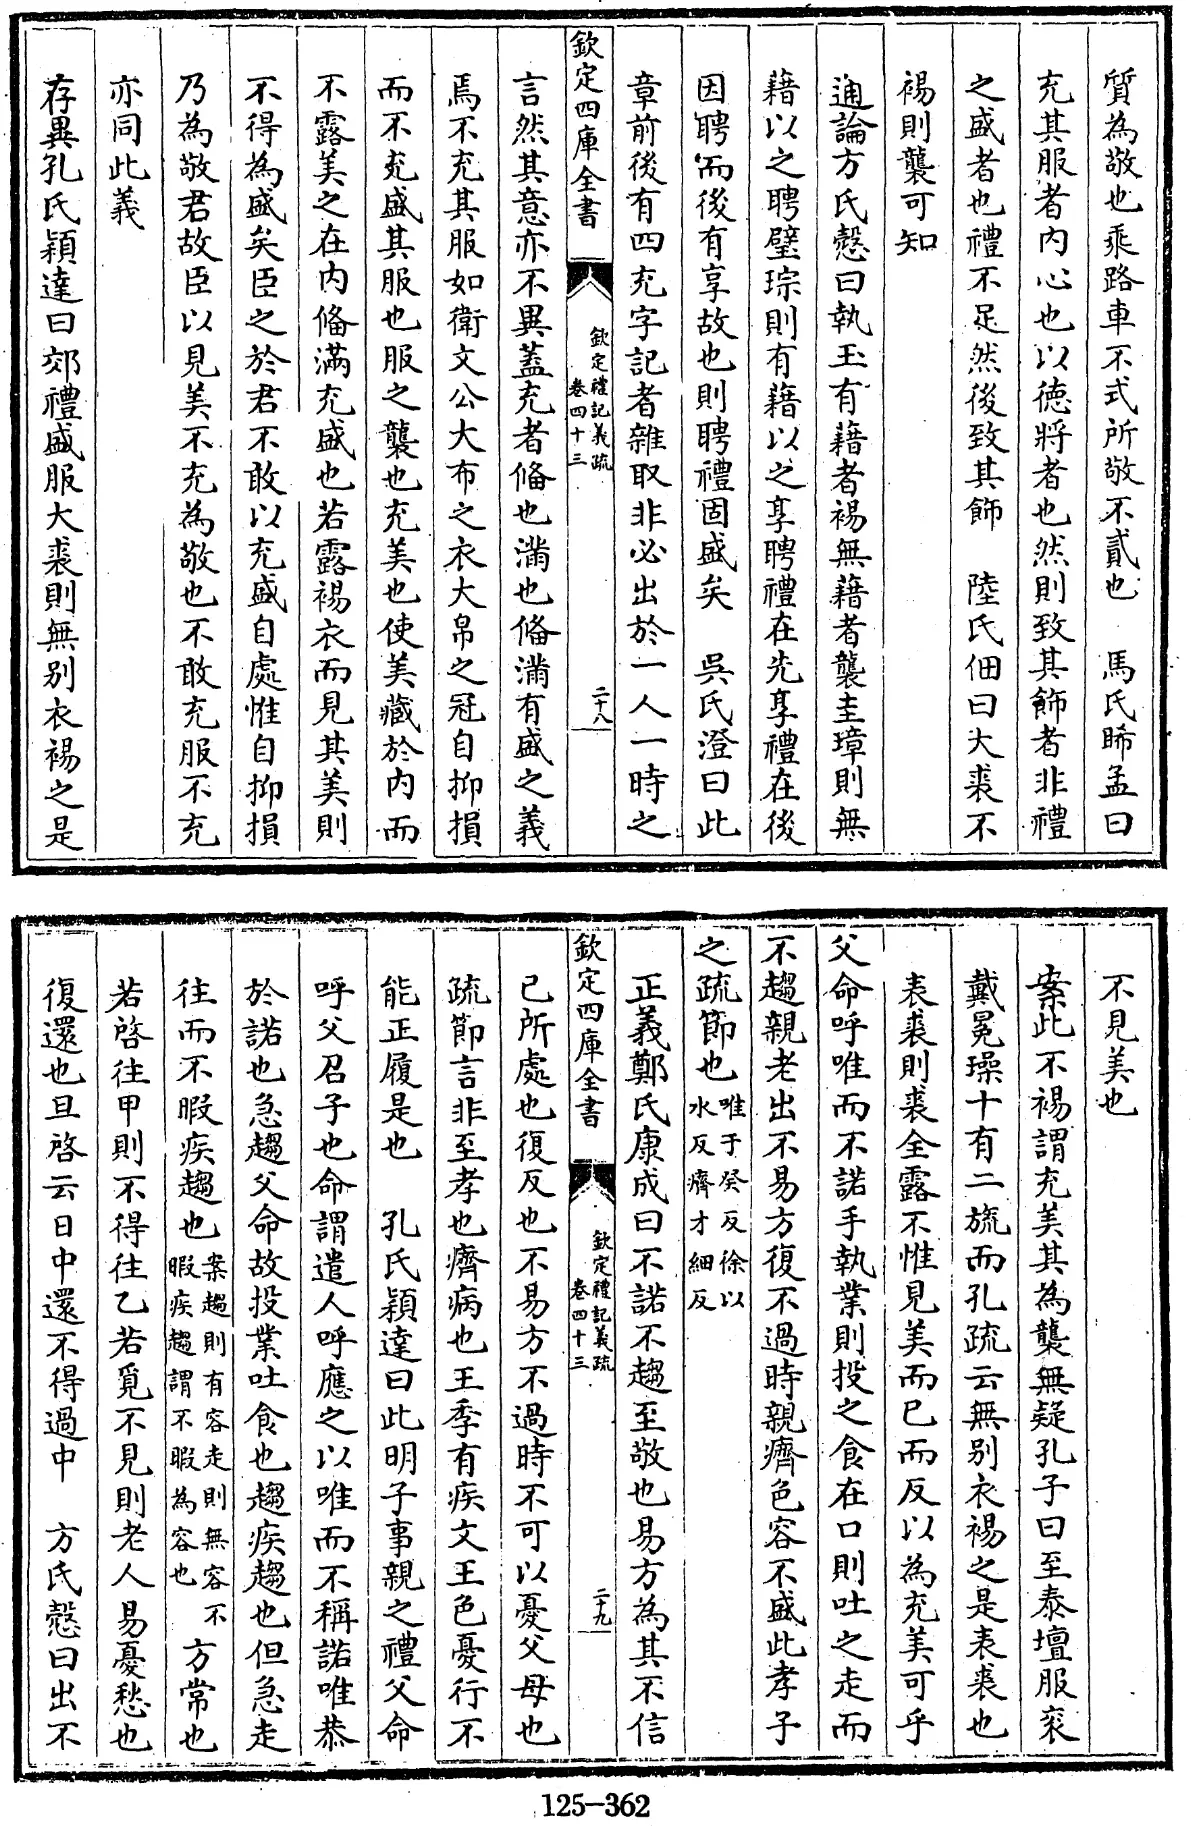 質為敬也乘路車不式所敬不貳也　馬氏晞孟曰
充其服者内心也以德將者也然則致其飾者非禮
之盛者也禮不足然後致其飾　陸氏佃曰大裘不
裼則襲可知
通論方氏慤曰執玉有藉者裼無藉者襲圭璋則無
藉以之聘璧琮則有藉以之享聘禮在先享禮在後
因聘而後有享故也則聘禮固盛矣　吳氏澄曰此
章前後有四充字記者雜取非必出於一人一時之
欽定四庫全書　欽定禮記義疏　卷四十三　二十八
言然其意亦不異蓋充者備也滿也備滿有盛之義
焉不充其服如衛文公大布之衣大帛之冠自抑損
而不充盛其服也服之襲也充美也使美藏於内而
不露美之在内備滿充盛也若露裼衣而見其美則
不得為盛矣臣之於君不敢以充盛自處惟自抑損
乃為敬君故臣以見美不充為敬也不敢充服不充
亦同此義
存異孔氏穎達曰郊禮盛服大裘則無别衣裼之是
不見美也
案此不裼謂充美其為襲無疑孔子曰至泰壇服衮
戴冕璪十有二旒而孔疏云無别衣裼之是表裘也
表裘則裘全露不惟見美而已而反以為充美可乎
父命呼唯而不諾手執業則投之食在口則吐之走而
不趨親老出不易方復不過時親癠色容不盛此孝子
之疏節也唯于癸反徐以水反癠才細反
正義鄭氏康成曰不諾不趨至敬也易方為其不信
欽定四庫全書　欽定禮記義疏　卷四十三　二十九
已所處也復反也不易方不過時不可以憂父母也
疏節言非至孝也癠病也王季有疾文王色憂行不
能正履是也　孔氏穎達曰此明子事親之禮父命
呼父召子也命謂遣人呼應之以唯而不稱諾唯恭
於諾也急趨父命故投業吐食也趨疾趨也但急走
往而不暇疾趨也案趨則有容走則無容不暇疾趨謂不暇為容也　方常也
若啓往甲則不得往乙若覓不見則老人易憂愁也
復還也旦啓云日中還不得過中　方氏慤曰出不
125-362